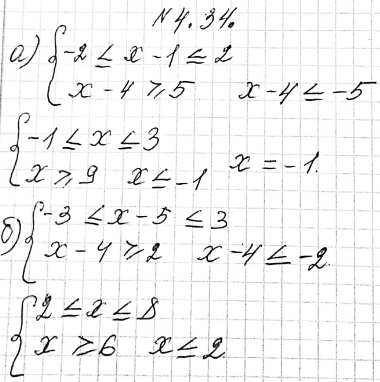 №4.34.
а) { -2 ≤ x - 1 ≤ 2
x - 4 ⩾ 5 x - 4 ≤ -5
{ -1 ≤ x ≤ 3
x ⩾ 9 x ≤ -1 x = -1.
б) { -3 ≤ x - 5 ≤ 3
x - 4 ⩾ 2 x - 4 ≤ -2.
{ 2 ≤ x ≤ 8
x ≥ 6 x ≤ 2